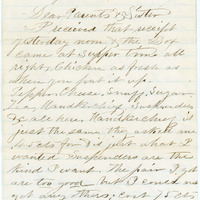 Dear Parents & Sister
I received that weight
yesterday noon & the Box
came at supper time all
right, Chicken as fresh as
when you put it up.
Pepper Cheese, Snuff, Sugar
Tea, Handkerchief Suspenders
& all here. Handkerchief is
just the same thy asked me
cts for & is just what I
wanted Suspenders are the
kind I want. The pair I got
are too good but I could not
get any others, cost 75 cts